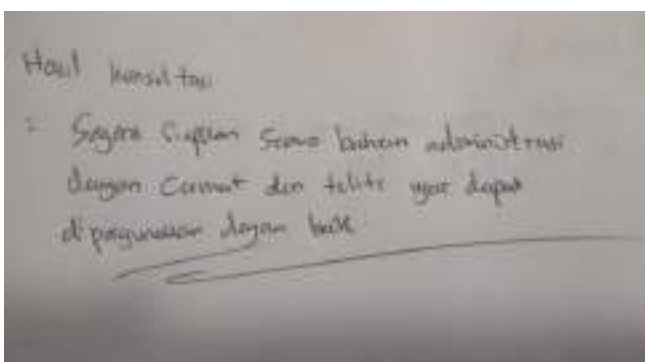 Hasil konsultasi
: Segera siapkan semua bahan administrasi
dengan cermat dan teliti agar dapat
dipergunakan dengan baik.